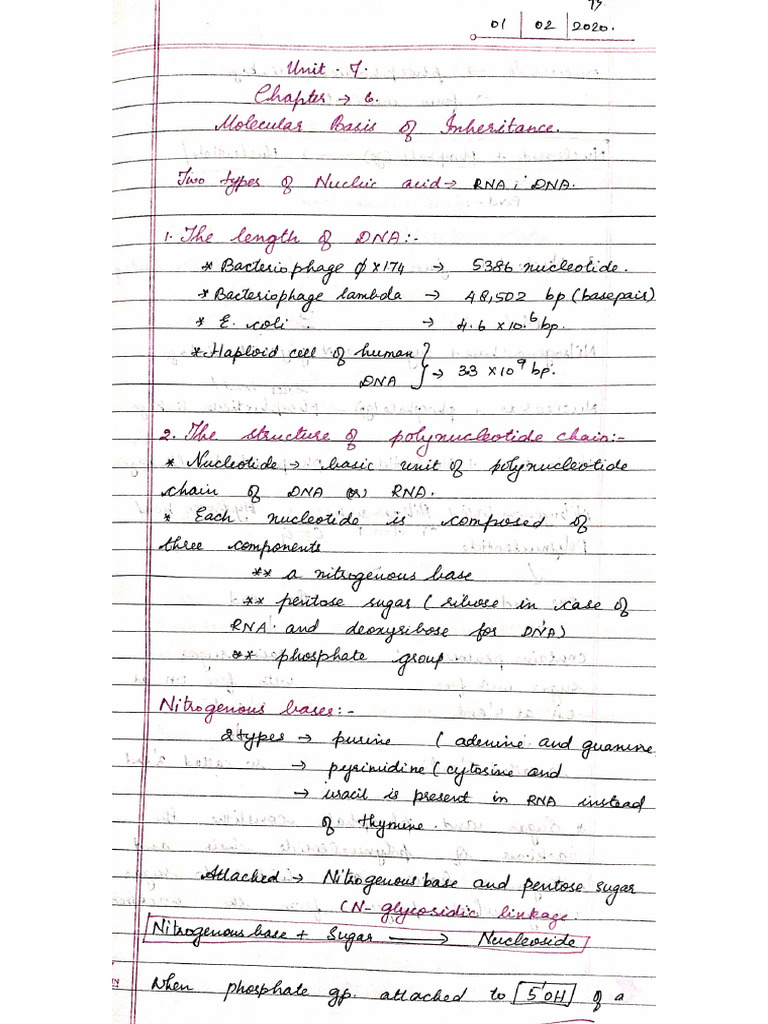 01 | 02 | 2020.
Unit - 7.
Chapter → 6.
Molecular Basis of Inheritance.
Two types of Nucleic acid → RNA ; DNA.
1. The length of DNA:-
* Bacteriophage ϕ×174 → 5386 nucleotide.
* Bacteriophage lambda → 48,502 bp (basepair)
* E. coli . → 4.6 ×10.⁶ bp.
* Haploid cell of human }
DNA } → 3.3 ×10⁹ bp.
2. The structure of polynucleotide chain:-
* Nucleotide, → basic unit of polynucleotide
chain of DNA (or) RNA.
* Each nucleotide is composed of
three components
** a nitrogenous base
** pentose sugar ( ribose in case of
RNA. and deoxyribose for DNA)
** phosphate group
Nitrogenous bases:-
2 types → purine ( adenine and guanine
→ pyrimidine ( cytosine and
→ uracil is present in RNA instead
of thymine.
Attached → Nitrogenous base and pentose sugar
(N- glycosidic linkage
Nitrogenous base + Sugar ⟶ Nucleoside
When phosphate gp. attached to 5'OH of a